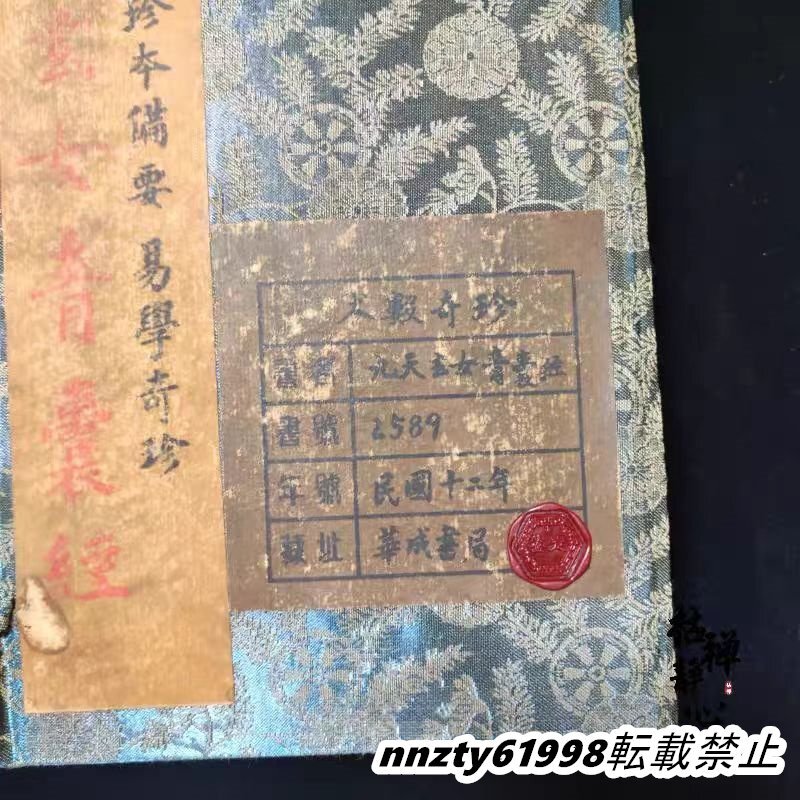 玄女青囊經
珍本備要 易學奇珍
大毅奇珍
書名 九天玄女青囊經
書號 2589
年號 民國十二年
藏址 華成書局
枯禅静心
nnzty61998転載禁止